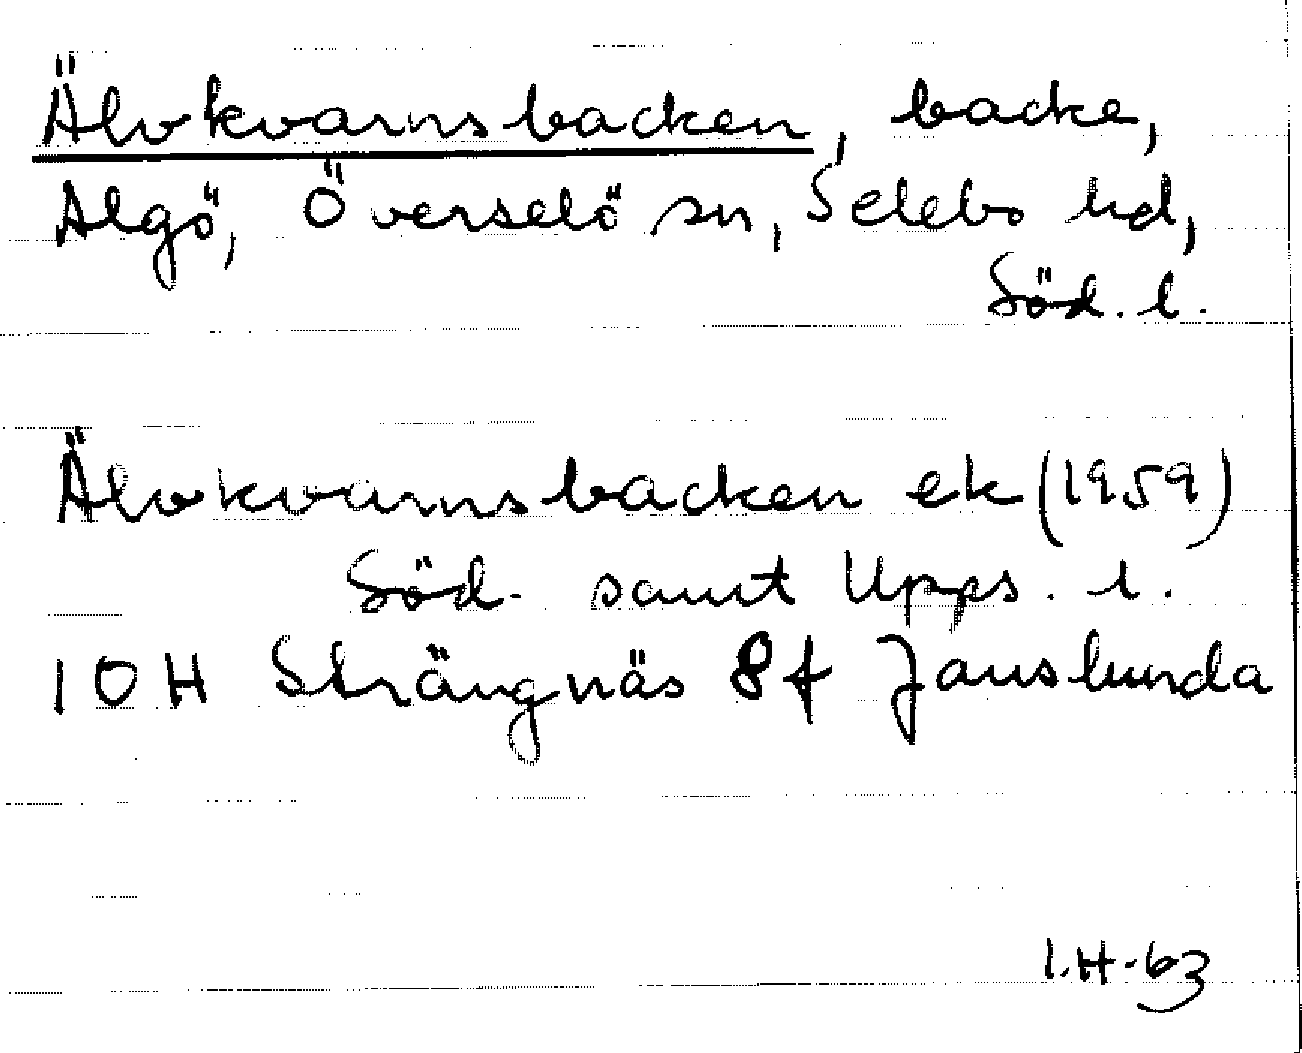 Älvkvarnsbacken, backe,
Algö, Överselö sn, Selebo hd,
Söd. l.
Älvkvarnsbacken ek (1959)
Söd. samt Upps. l.
10H Strängnäs 8f Janslunda
I.H-63